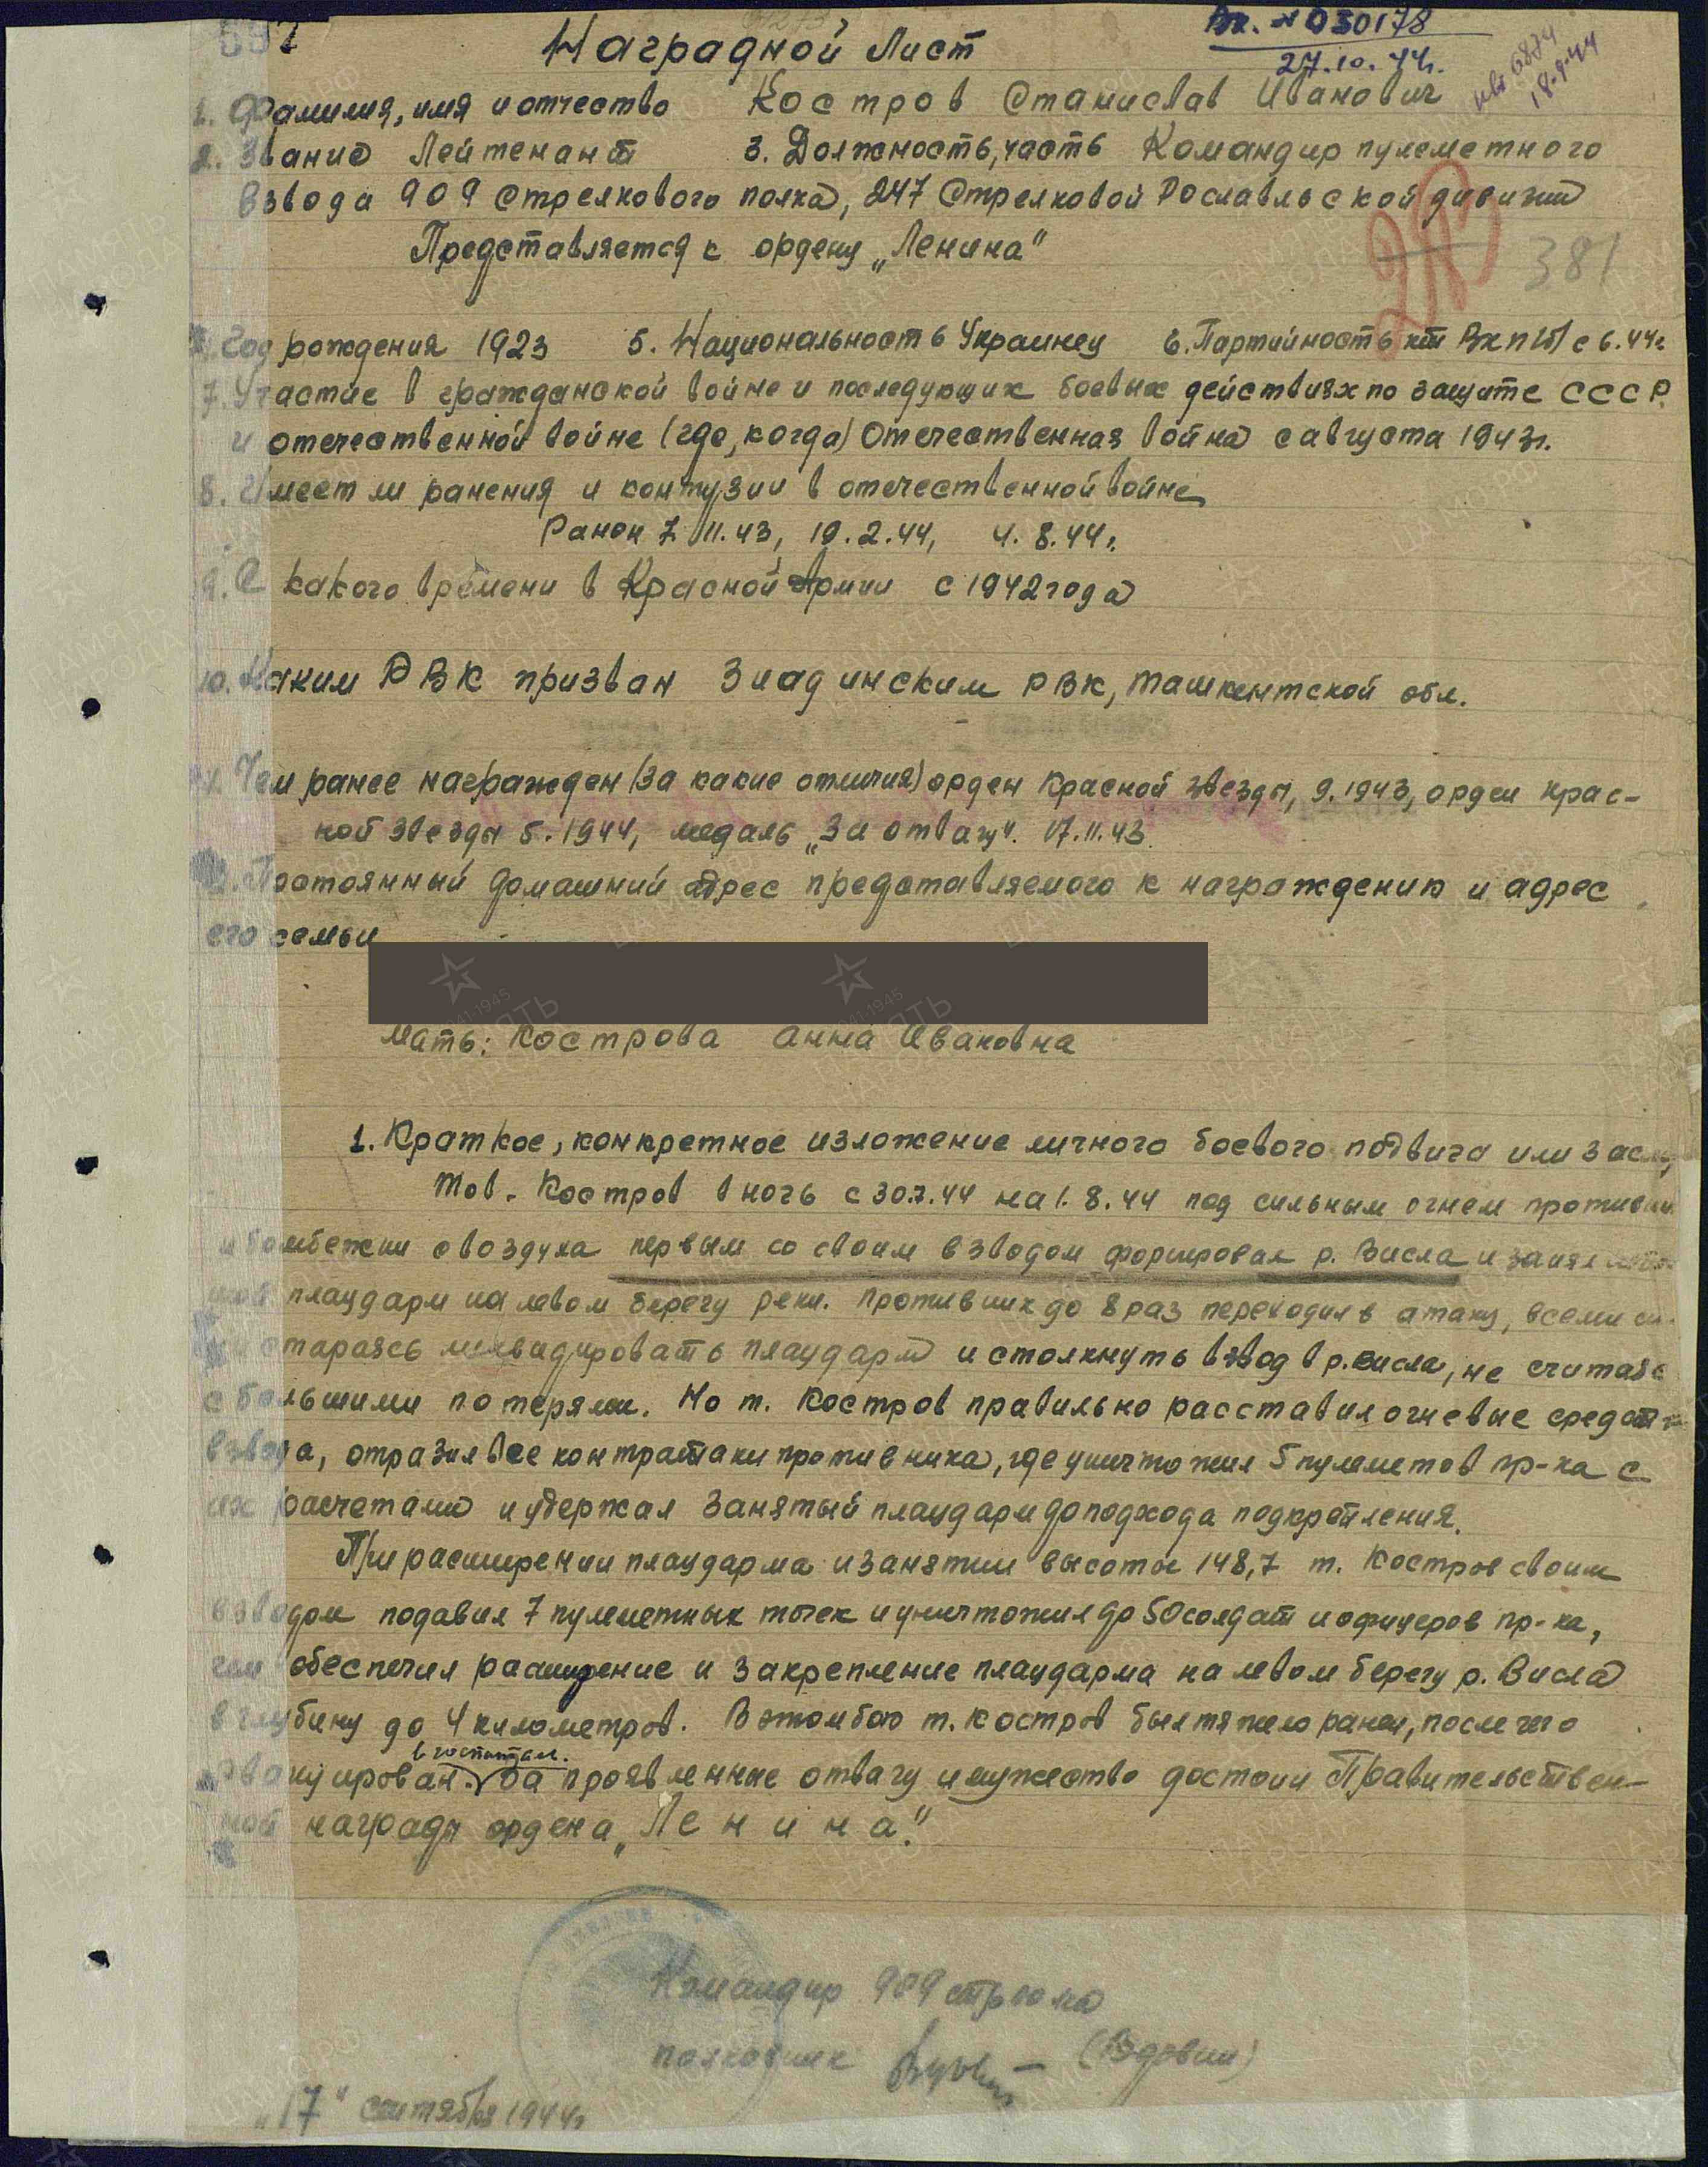 Вх. № 030178
27.10.44г.
18.9.44
Наградной Лист
1. Фамилия, имя и отчество Костров Станислав Иванович
2. Звание Лейтенант 3. Должность, часть Командир пулеметного
взвода 909 стрелкового полка, 247 Стрелковой Рославльской дивизии
Представляется к ордену „Ленина"
381
4. Год рождения 1923 5. Национальность Украинец 6. Партийность кт ВКП(б) с 6.44г.
7. Участие в гражданской войне и последующих боевых действиях по защите СССР
и отечественной войне (где, когда) Отечественная война с августа 1943г.
8. Имеет ли ранения и контузии в отечественной войне
Ранен 7.11.43, 19.2.44, 4.8.44г.
9. С какого времени в Красной Армии с 1942 года
10. Каким РВК призван Зиадинским РВК, Ташкентской обл.
11. Чем ранее награжден (за какие отличия) орден Красной звезды, 9.1943, орден Крас-
ной звезды 5.1944, медаль „За отвагу". 17.11.43
12. Постоянный домашний адрес представляемого к награждению и адрес
его семьи
Мать: Кострова Анна Ивановна
1. Краткое, конкретное изложение личного боевого подвига или заслуг
Тов. Костров в ночь с 30.7.44 на 1.8.44 под сильным огнем противни
и бомбежки с воздуха первым со своим взводом форсировал р. Висла и занял
плацдарм на левом берегу реки. Противник до 8 раз переходил в атаку, всеми си-
стараясь ликвидировать плацдарм и столкнуть взвод в р. Висла, не считаяс
с большими потерями. Но т. Костров правильно расставил огневые средств
взвода, отразил все контратаки противника, где уничтожил 5 пулеметов пр-ка с
их расчетами и удержал занятый плацдарм до подхода подкрепления.
При расширении плацдарма и занятии высоты 148,7 т. Костров своим
взводом подавил 7 пулеметных точек и уничтожил до 50 солдат и офицеров пр-ка,
чем обеспечил расширение и закрепление плацдарма на левом берегу р. Висла
в глубину до 4 километров. В этом бою т. Костров был тяжело ранен, после чего
в госпитал.
эвакуирован. За проявленные отвагу и мужество достоин Правительствен-
ной награды ордена „Ленина".
Командир 909 стр. полка
полковник (Вдовин)
„17" сентября 1944г